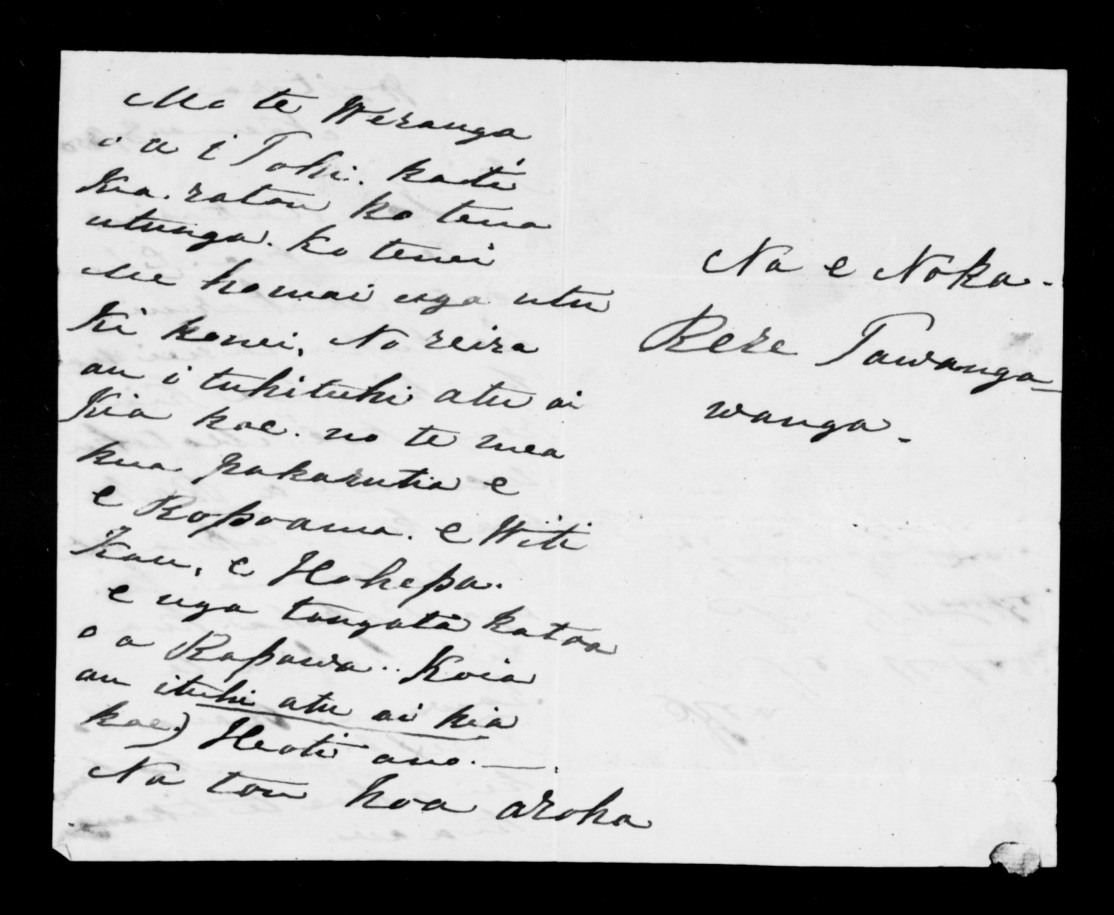 Mo te Weranga
i a i Tohi. kati
Kia. ratou ko tena
utunga. ko tenei
Me homai enga utu
Ki konei, No reira
au i tuhituhi atu ai
Kia koe. no te mea
kua pakarutia e
e Ropoama. e Witi
Kau, e Hohepa.
e nga tangata katoa
o a Rapawa.. Koia
au i tuhi atu ai kia
koe) Heoti ano.—.
Na tou hoa aroha
Na e Noka.
Rere Tawanga-
wanga.